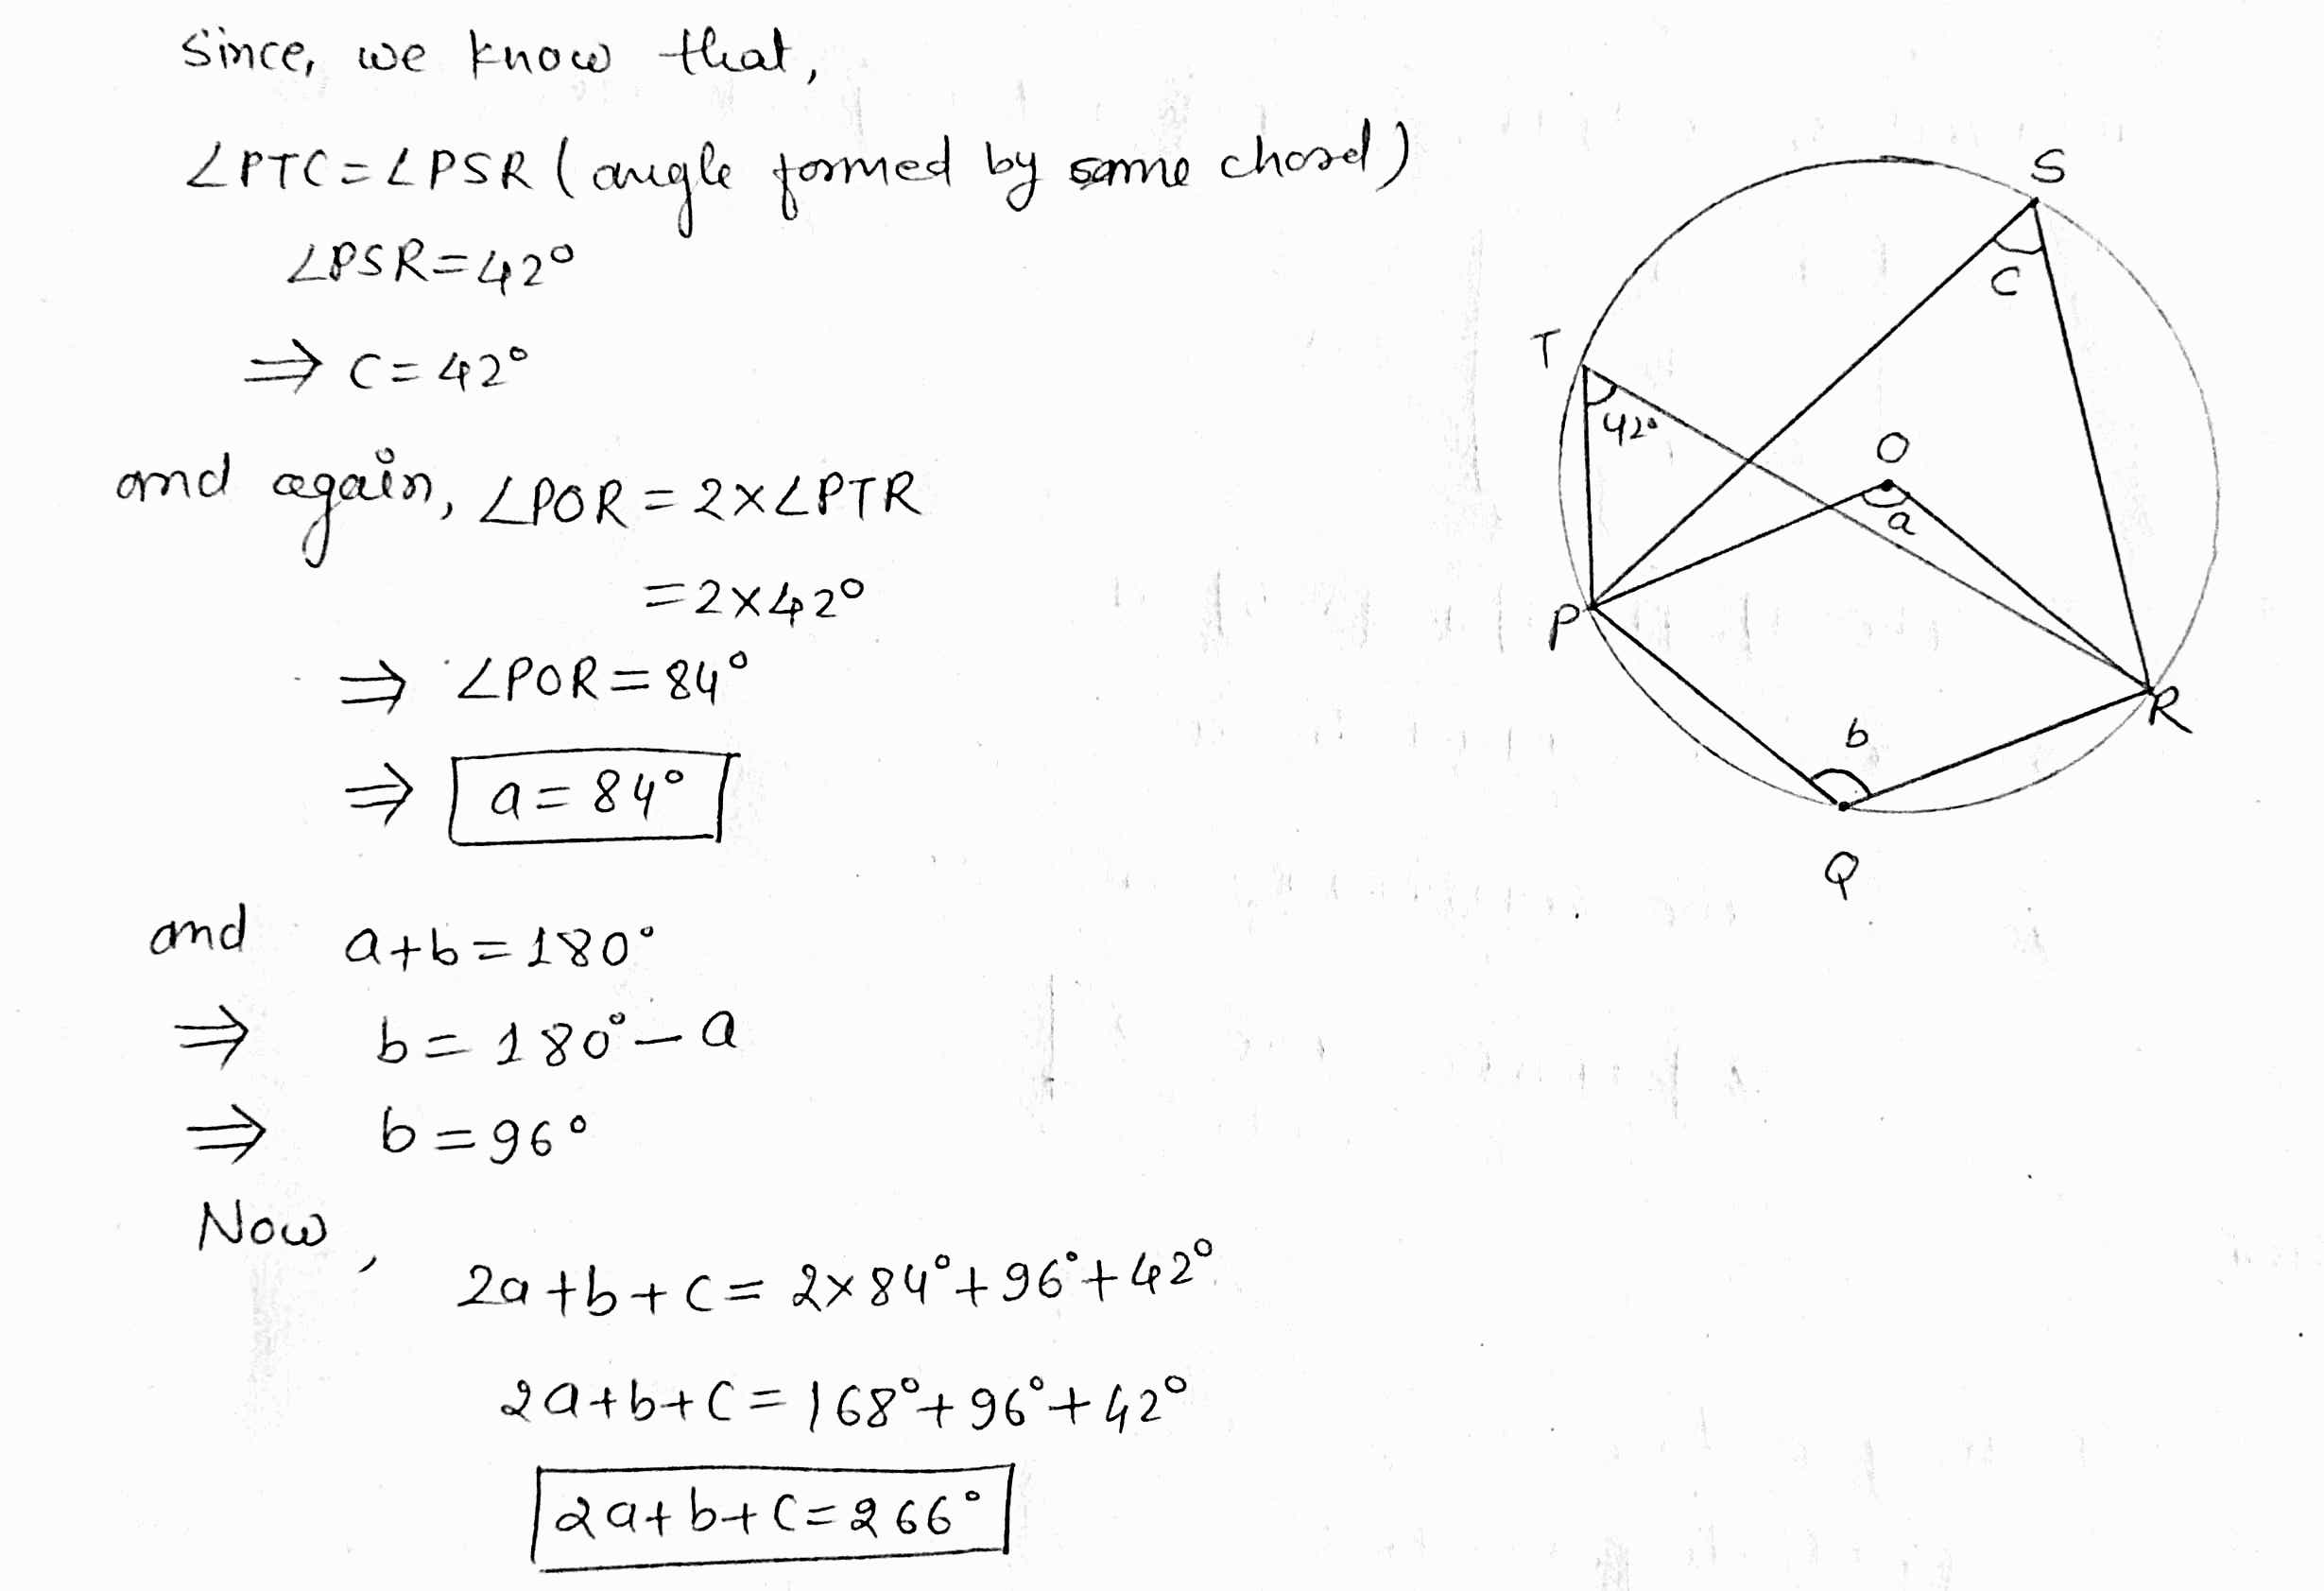 Since, we know that,
∠PTC=∠PSR (angle formed by same chord)
∠PSR=42°
⇒ C=42°
and again, ∠POR=2×∠PTR
=2×42°
⇒ ∠POR=84°
⇒ a=84°
and a+b=180°
⇒ b=180°-a
⇒ b=96°
Now,
2a+b+c=2×84°+96°+42°
2a+b+c=168°+96°+42°
2a+b+c=266°
S
C
T
42°
O
a
P
R
b
Q